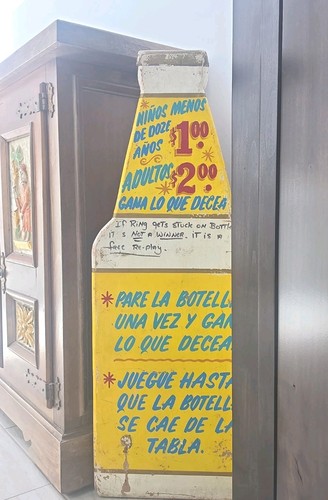 NIÑOS MENOS
DE DOZE
AÑOS $1.00
ADULTOS $2.00
GANA LO QUE DECEA
If RING gets stuck on Bottl
it s NOT A WINNER. it is a
free Re-play.
*PARE LA BOTELL
UNA VEZ Y GAN
LO QUE DECEA
*JUEGUE HASTA
QUE LA BOTELL
SE CAE DE LA
TABLA.